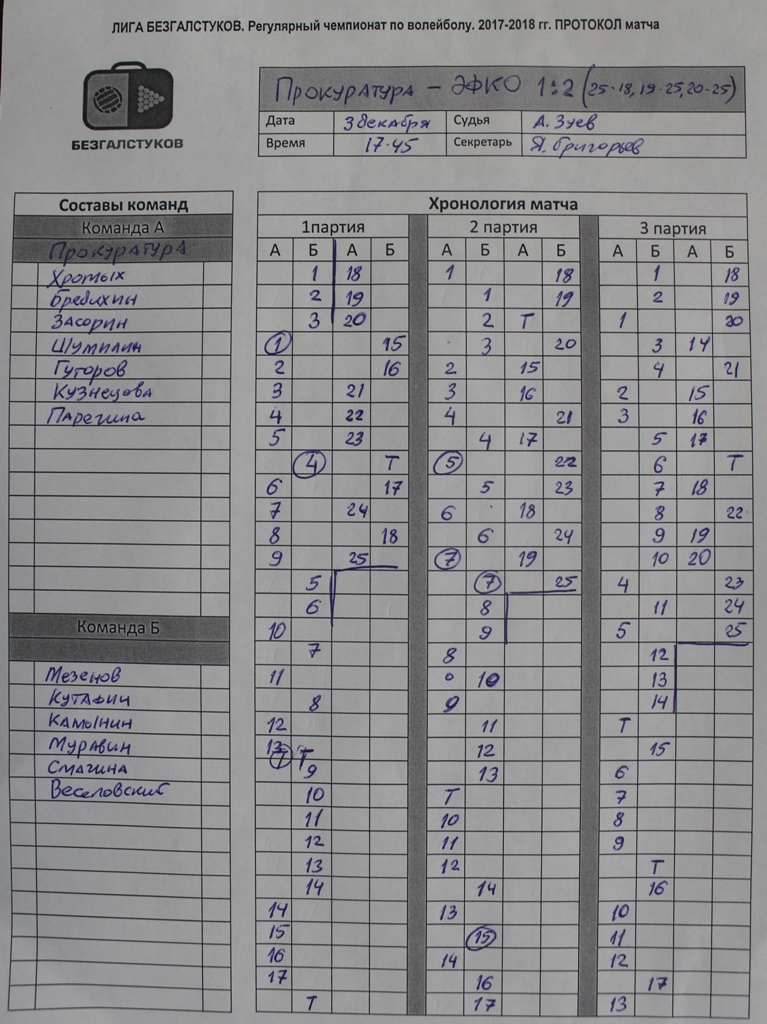 ЛИГА БЕЗГАЛСТУКОВ. Регулярный чемпионат по волейболу. 2017-2018 гг. ПРОТОКОЛ матча
БЕЗГАЛСТУКОВ
Прокуратура - ЭФКО 1:2 (25-18, 19-25, 20-25)
Дата 3 декабря Судья А. Зуев
Время 17-45 Секретарь Я. Григорьев
Составы команд
Команда А
Прокуратура
Хромых
Бребихин
Засорин
Шумилин
Гуторов
Кузнецова
Парегина
Команда Б
Мезенов
Кутафин
Камынин
Муравин
Смагина
Веселовский
Хронология матча
1партия 2 партия 3 партия
А Б А Б А Б А Б А Б А Б
1 18 1 18 1 18
2 19 1 19 2 19
3 20 2 Т 1 20
1 15 3 20 3 14
2 16 2 15 4 21
3 21 3 16 2 15
4 22 4 21 3 16
5 23 4 17 5 17
4 Т 5 22 6 Т
6 17 5 23 7 18
7 24 6 18 8 22
8 18 6 24 9 19
9 25 7 19 10 20
5 7 25 4 23
6 8 11 24
10 9 5 25
7 8 12
11 10 13
8 9 14
12 11 Т
13 Т 12 15
7 9 13 6
10 Т 7
11 10 8
12 11 9
13 12 Т
14 14 16
14 13 10
15 15 11
16 14 12
17 16 17
Т 17 13